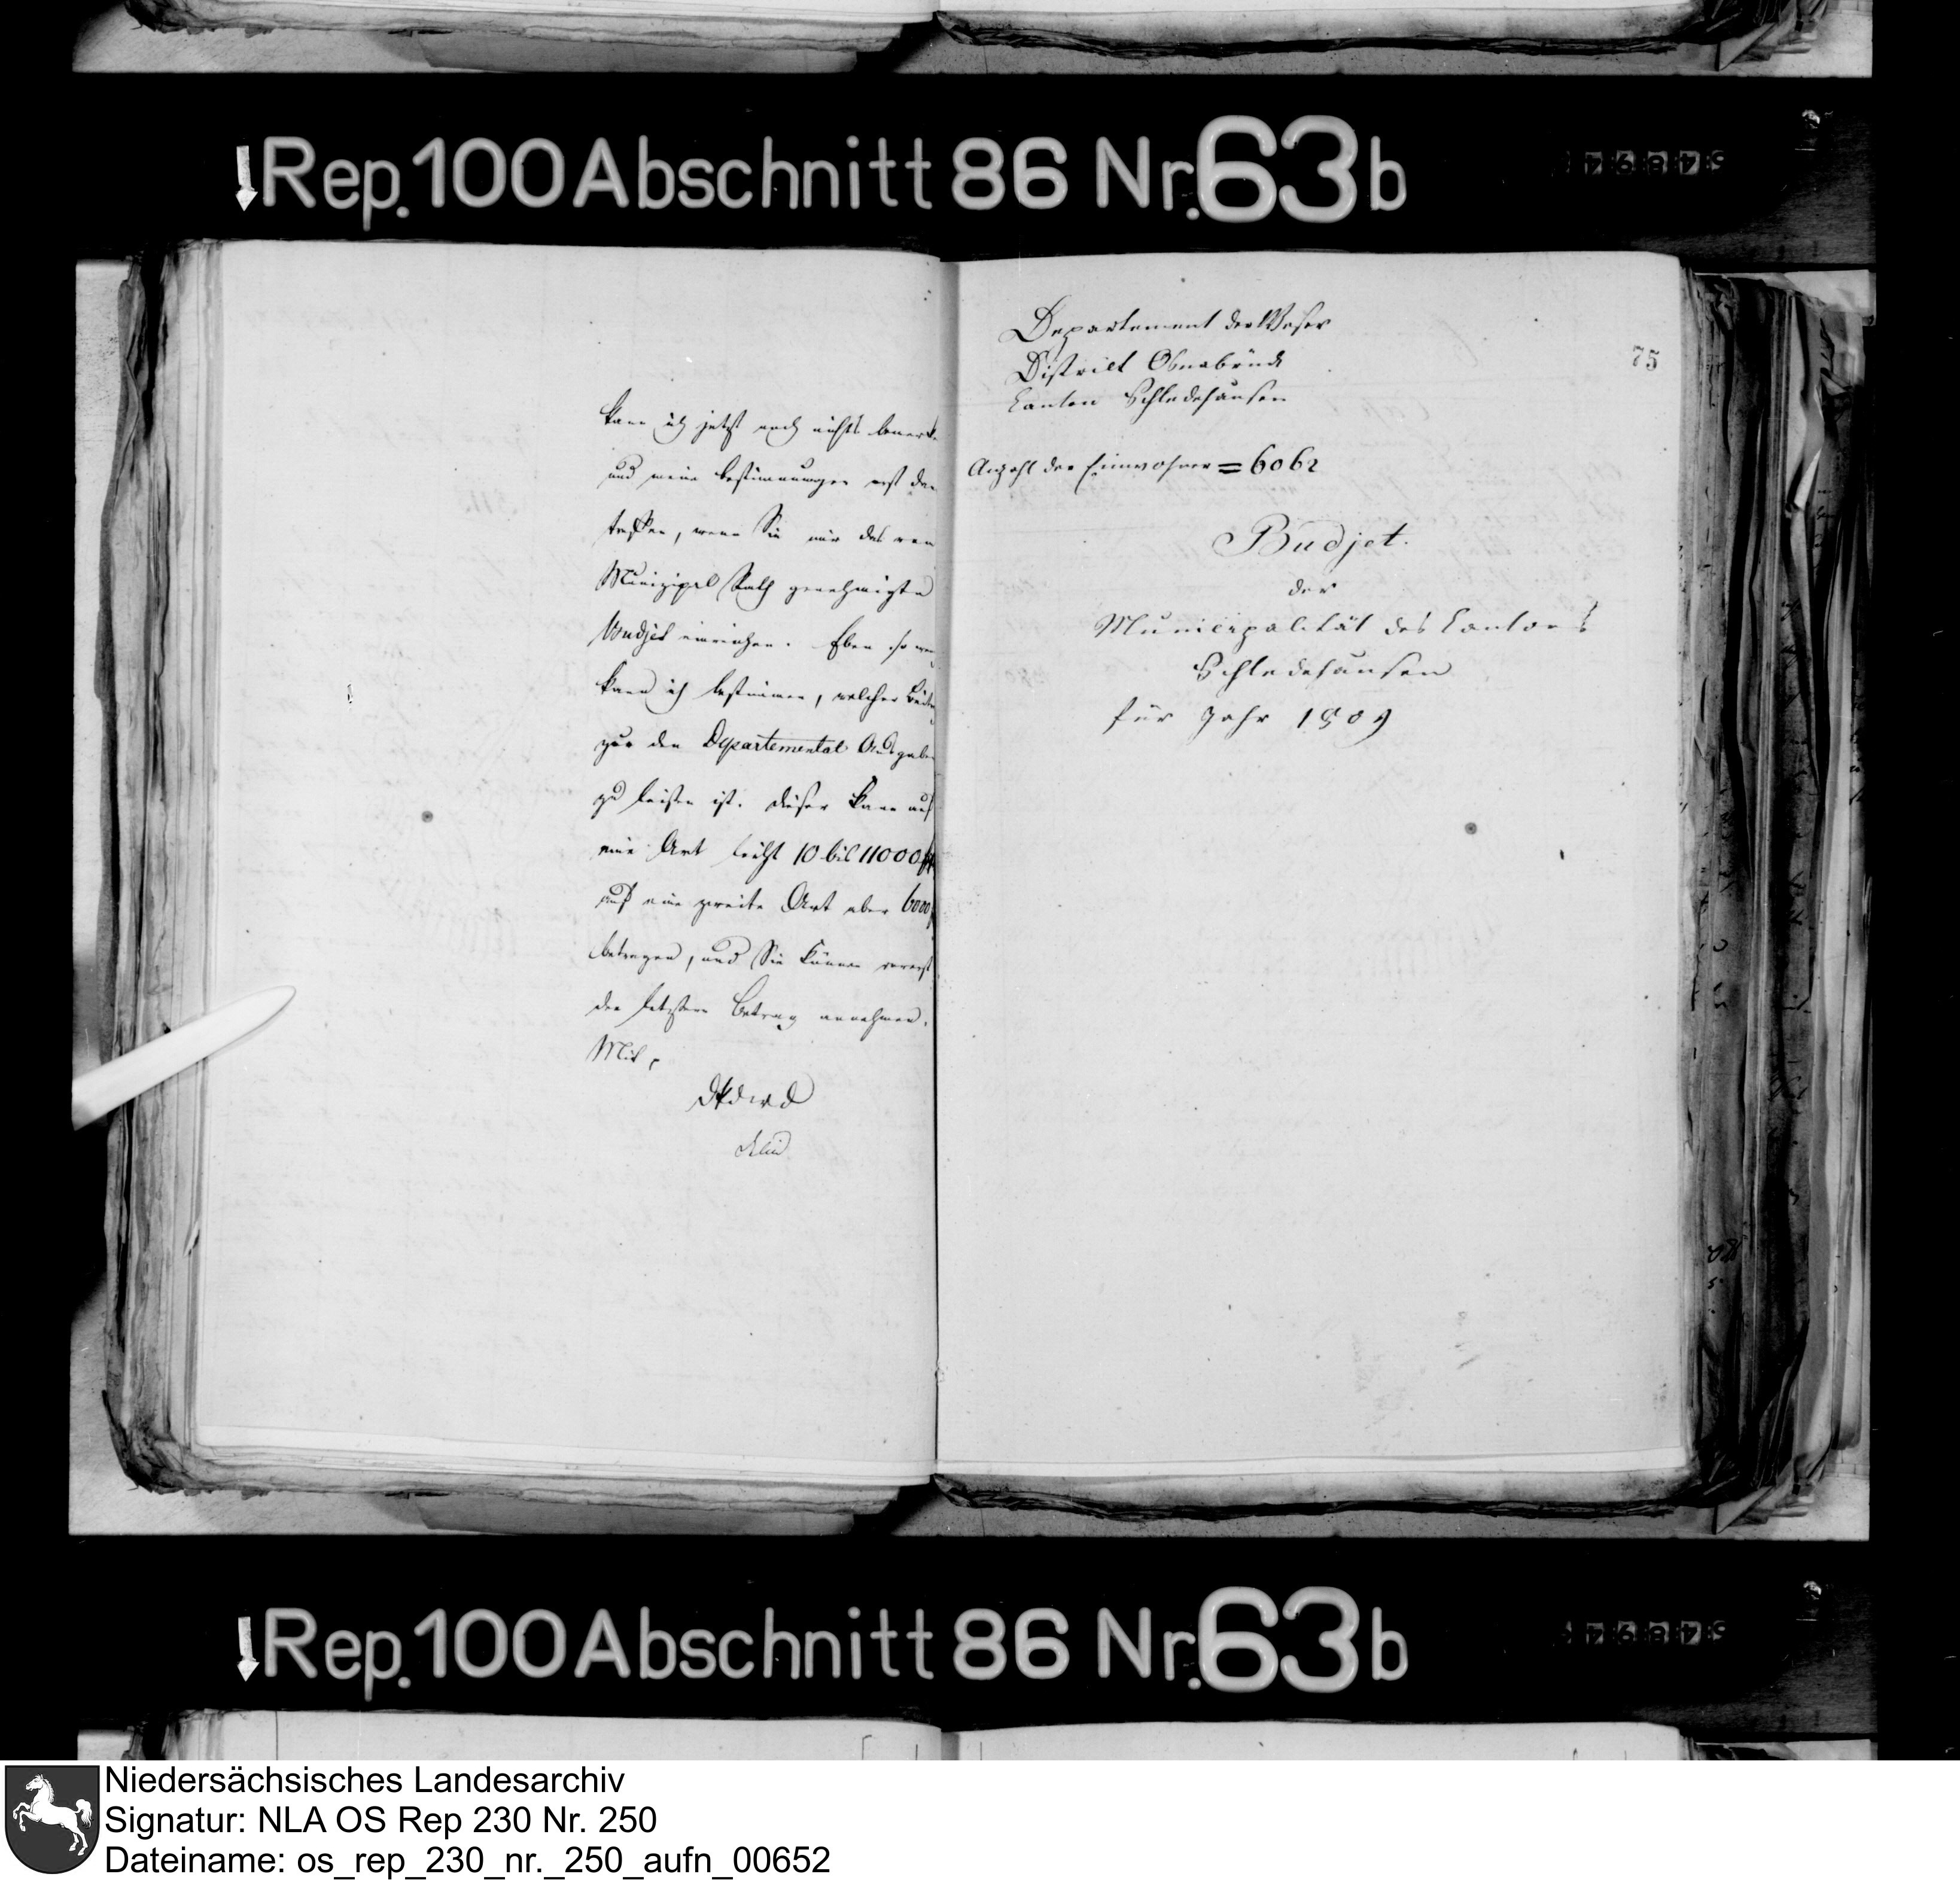 Rep. 100 Abschnitt 86 Nr. 63b
kann ich jetzt noch nichts bemerken
und meine Bestimmungen erst dan
treffen, wenn Sie mir das vom
Munizipal Rath genehmigte
Budjet einreichen. Eben so wenig
kann ich bestimmen, welcher Beitrag
zu den Departemental Ausgaben
zu leisten ist. Dieser kann auf
eine Art leicht 10 bis 11000
auf eine zweite Art aber 6000
betragen, und Sie können vorerst
den letztern Betrag annehmen.
Mit
75
Departement der Weser
District Osnabrück
Canton Schledehausen
Anzahl der Einwohner = 6062
Budjet.
der
Municipalität des Cantons
Schledehausen
für Jahr 1809
Rep. 100 Abschnitt 86 Nr. 63b
Niedersächsisches Landesarchiv
Signatur: NLA OS Rep 230 Nr. 250
Dateiname: os_rep_230_nr._250_aufn_00652